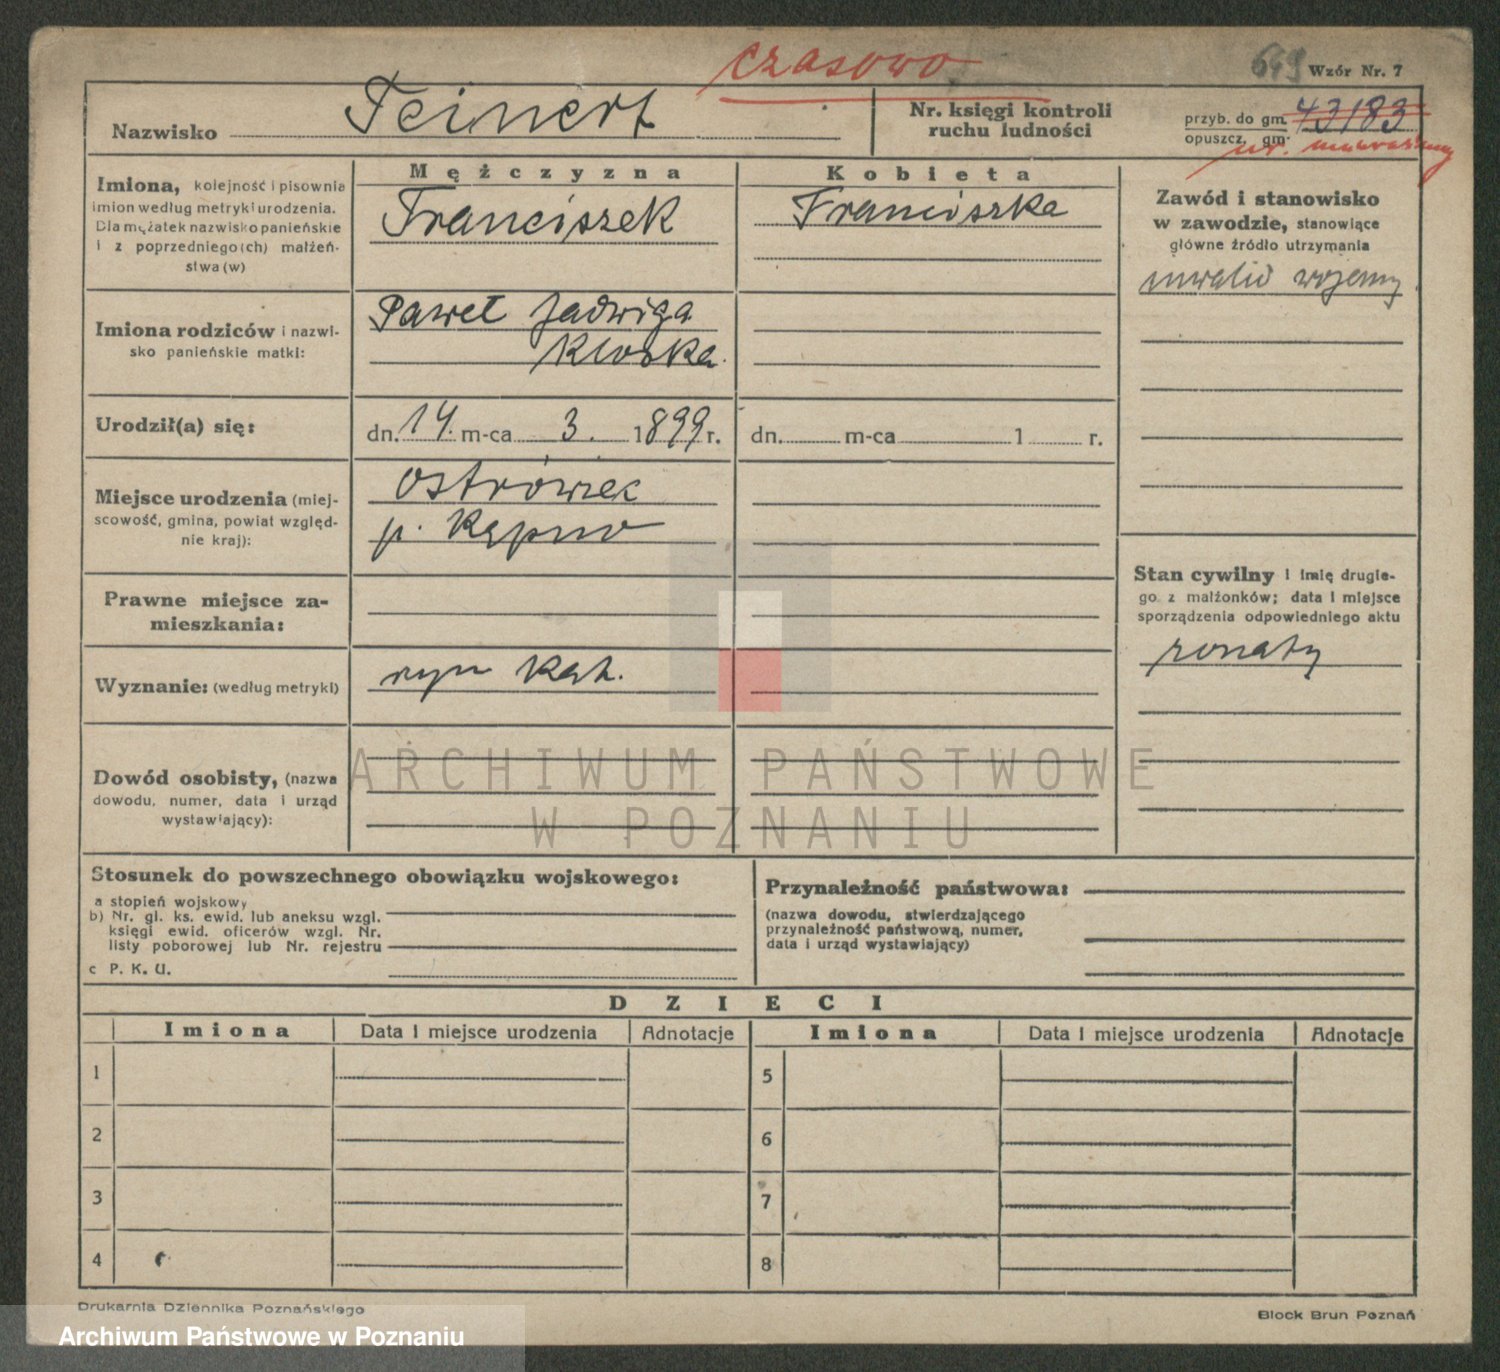 czasowo
649 Wzór Nr. 7
Nazwisko Teinert
Nr. księgi kontroli
ruchu ludności
przyb. do gm. 43/83
opuszcz. gm.
Mężczyzna
Kobieta
Imiona, kolejność i pisownia
imion według metryki urodzenia.
Dla mężatek nazwisko panieńskie
i z poprzedniego(ch) małżeń-
stwa(w)
Franciszek
Franciszka
Zawód i stanowisko
w zawodzie, stanowiące
główne źródło utrzymania
inwalid wojenny
Imiona rodziców i nazwi-
sko panieńskie matki:
Paweł Jadwiga
Kloska
Urodził(a) się:
dn. 14. m-ca 3. 1899 r.
dn. m-ca 1 r.
Miejsce urodzenia (miej-
scowość, gmina, powiat względ-
nie kraj):
Ostrówiec
p. Kępno
Stan cywilny i imię drugie-
go z małżonków; data i miejsce
sporządzenia odpowiedniego aktu
żonaty
Prawne miejsce za-
mieszkania:
Wyznanie: (według metryki)
rzym kat.
Dowód osobisty, (nazwa
dowodu, numer, data i urząd
wystawiający):
ARCHIWUM PAŃSTWOWE
W POZNANIU
Stosunek do powszechnego obowiązku wojskowego:
a stopień wojskowy
b) Nr. gł. ks. ewid. lub aneksu wzgl.
księgi ewid. oficerów wzgl. Nr.
listy poborowej lub Nr. rejestru
c P. K. U.
Przynależność państwowa:
(nazwa dowodu, stwierdzającego
przynależność państwową, numer,
data i urząd wystawiający)
DZIECI
Imiona Data i miejsce urodzenia Adnotacje Imiona Data i miejsce urodzenia Adnotacje
1 5
2 6
3 7
4 8
Drukarnia Dziennika Poznańskiego
Block Brun Poznań
Archiwum Państwowe w Poznaniu